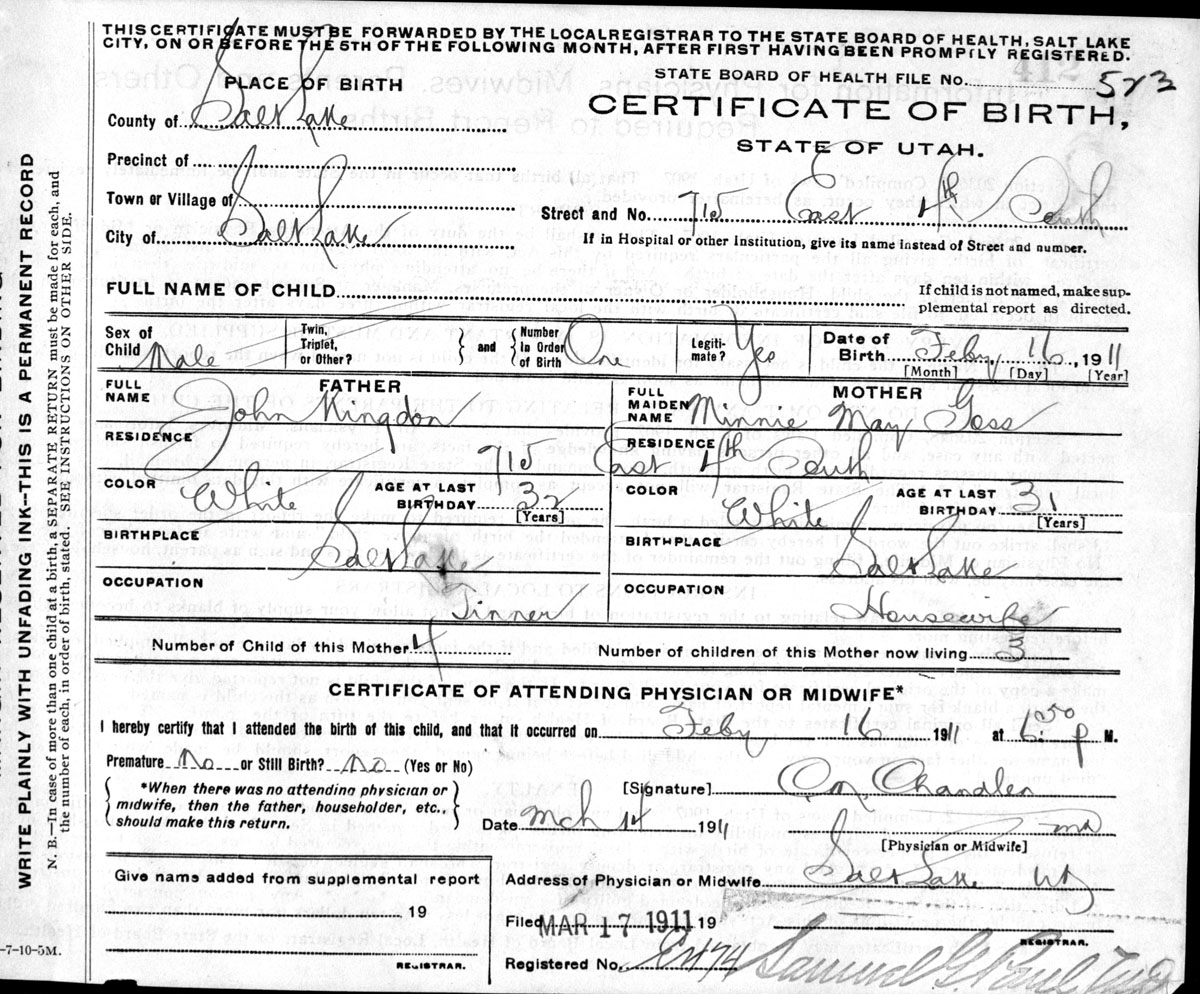 THIS CERTIFICATE MUST BE FORWARDED BY THE LOCAL REGISTRAR TO THE STATE BOARD OF HEALTH, SALT LAKE
CITY, ON OR BEFORE THE 5TH OF THE FOLLOWING MONTH, AFTER FIRST HAVING BEEN PROMPTLY REGISTERED.
PLACE OF BIRTH
STATE BOARD OF HEALTH FILE No. 573
CERTIFICATE OF BIRTH,
STATE OF UTAH.
County of Salt Lake
Precinct of
Town or Village of
City of Salt Lake
Street and No. 715 East 4th South
If in Hospital or other Institution, give its name instead of Street and number.
FULL NAME OF CHILD
If child is not named, make sup-
plemental report as directed.
Sex of Child Male
Twin, Triplet, or Other?
and
Number in Order of Birth One
Legiti-mate? Yes
Date of Birth Feby 16, 1911
[Month] [Day] [Year]
FATHER
FULL NAME John Kingdon
MOTHER
FULL MAIDEN NAME Minnie May Goss
RESIDENCE 715
RESIDENCE East 4th South
COLOR White
AGE AT LAST BIRTHDAY 32 [Years]
COLOR White
AGE AT LAST BIRTHDAY 31 [Years]
BIRTHPLACE Salt Lake
BIRTHPLACE Salt Lake
OCCUPATION Tinner
OCCUPATION Housewife
Number of Child of this Mother 4
Number of children of this Mother now living 3
CERTIFICATE OF ATTENDING PHYSICIAN OR MIDWIFE*
I hereby certify that I attended the birth of this child, and that it occurred on Feby 16 1911 at 6:50 p M.
Premature No or Still Birth? No (Yes or No)
*When there was no attending physician or
midwife, then the father, householder, etc.,
should make this return.
[Signature] Chandler
Date Mch 14 1911
MD
[Physician or Midwife]
Give name added from supplemental report
19
REGISTRAR.
Address of Physician or Midwife Salt Lake Ut
Filed MAR 17 1911 19
REGISTRAR.
Registered No.
Samuel G. Paul
WRITE PLAINLY WITH UNFADING INK--THIS IS A PERMANENT RECORD
N. B.—In case of more than one child at a birth, a SEPARATE RETURN must be made for each, and
the number of each, in order of birth, stated. SEE INSTRUCTIONS ON OTHER SIDE.
-7-10-5M.